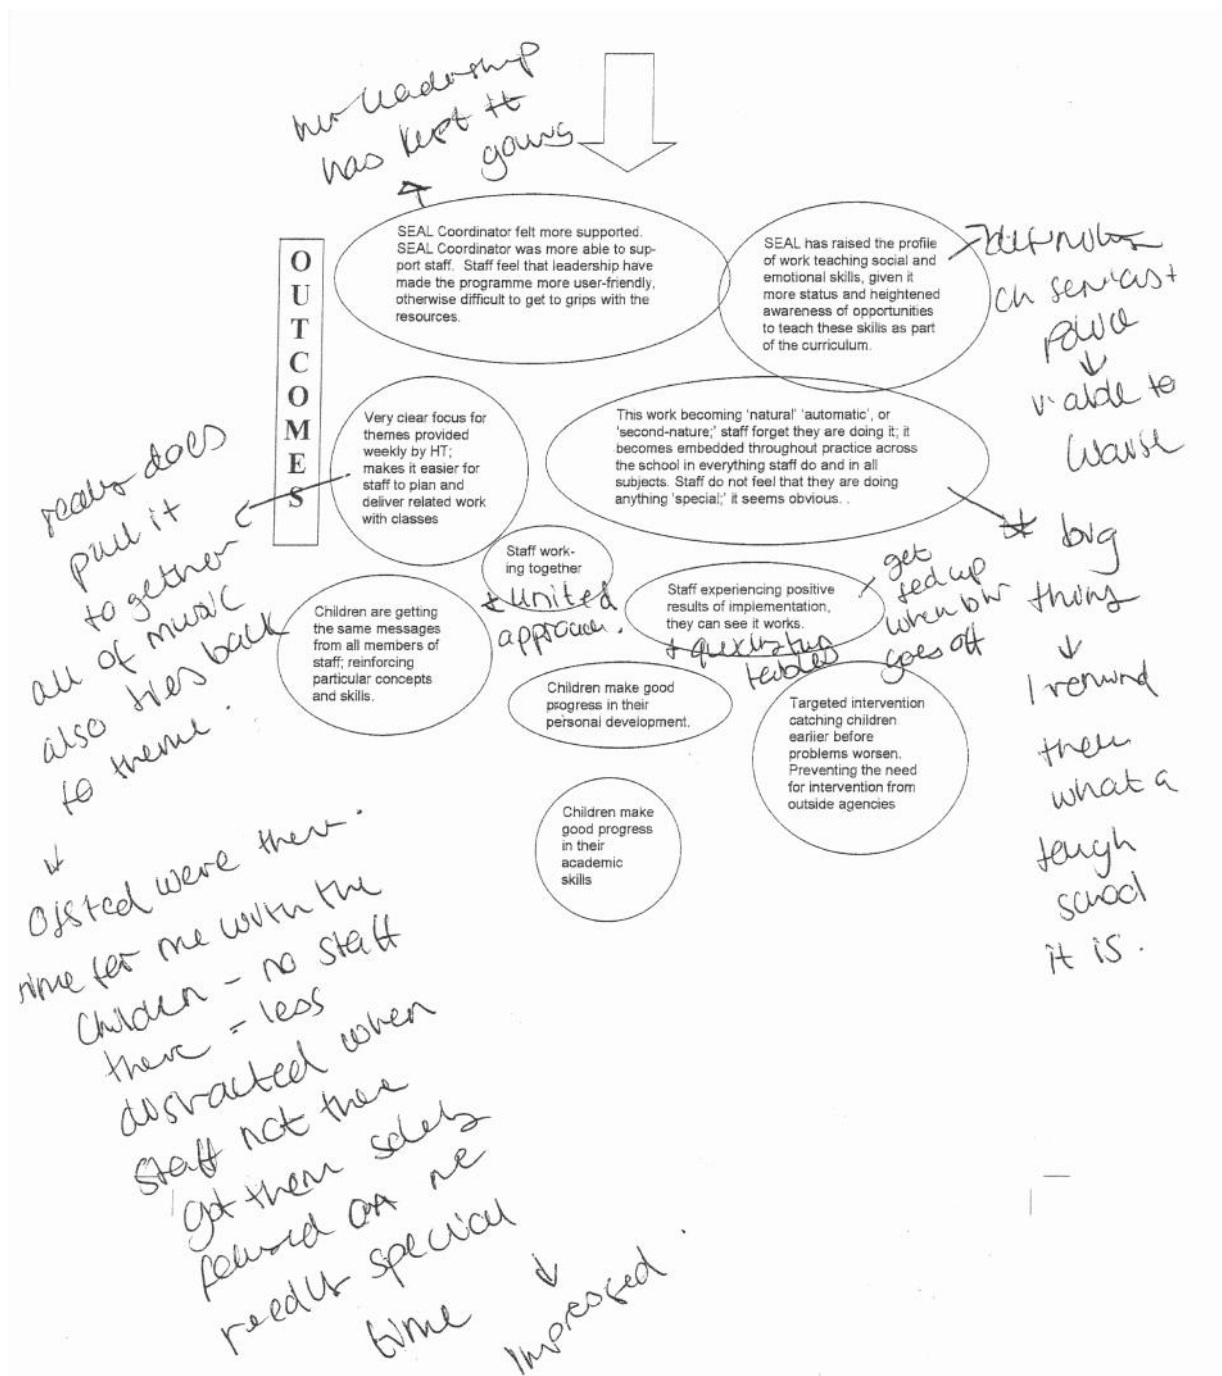 her leadership
has kept it
going
OUTCOMES
SEAL Coordinator felt more supported.
SEAL Coordinator was more able to sup-
port staff. Staff feel that leadership have
made the programme more user-friendly,
otherwise difficult to get to grips with the
resources.
SEAL has raised the profile
of work teaching social and
emotional skills, given it
more status and heightened
awareness of opportunities
to teach these skills as part
of the curriculum.
ch services +
police
v. able to
Very clear focus for
themes provided
weekly by HT;
makes it easier for
staff to plan and
deliver related work
with classes
This work becoming 'natural' 'automatic', or
'second-nature;' staff forget they are doing it; it
becomes embedded throughout practice across
the school in everything staff do and in all
subjects. Staff do not feel that they are doing
anything 'special;' it seems obvious. .
really does
pull it
together
all of music
also ties back
to theme.
big
thing
I remind
them
what a
tough
school
it is.
Staff work-
ing together
+ united
approach.
Staff experiencing positive
results of implementation,
they can see it works.
get
fed up
when
goes off
+
tables
Children are getting
the same messages
from all members of
staff; reinforcing
particular concepts
and skills.
Children make good
progress in their
personal development.
Targeted intervention
catching children
earlier before
problems worsen.
Preventing the need
for intervention from
outside agencies
Children make
good progress
in their
academic
skills
Ofsted were there.
time for me with the
children - no staff
there = less
distracted when
staff not there
got them solely
focused on me
really special
time
impressed.